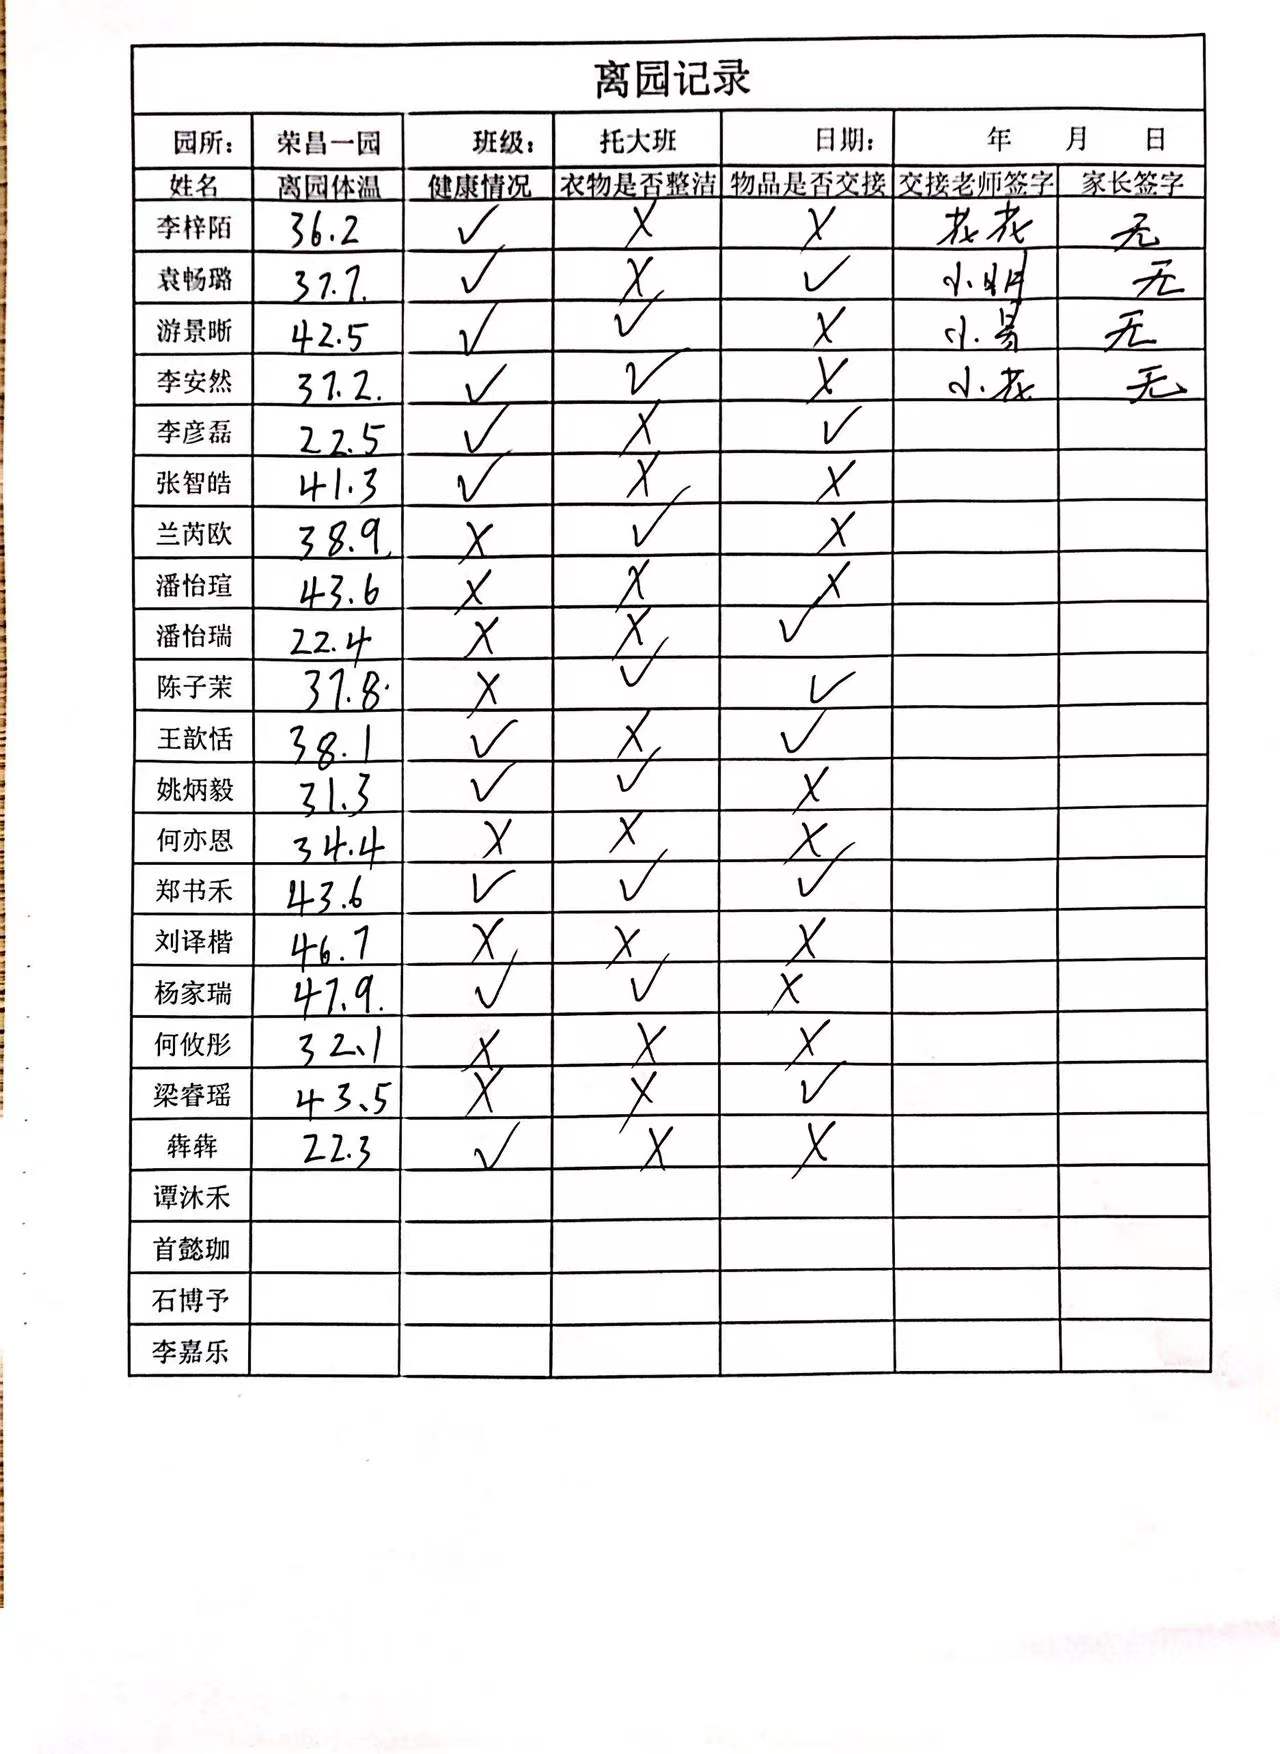 离园记录
园所： 荣昌一园 班级： 托大班 日期： 年 月 日
姓名 离园体温 健康情况 衣物是否整洁 物品是否交接 交接老师签字 家长签字
李梓陌 36.2 ✓ X X 花花 无
袁畅璐 37.7. ✓ X ✓ 小明 无
游景晰 42.5 ✓ ✓ X 小 无
李安然 37.2. ✓ ✓ X 小花 无
李彦磊 22.5 ✓ X ✓
张智皓 41.3 ✓ X X
兰芮欧 38.9 X ✓ X
潘怡瑄 43.6 X X X
潘怡瑞 22.4 X X ✓
陈子茉 37.8 X ✓ ✓
王歆恬 38.1 ✓ X ✓
姚炳毅 31.3 ✓ ✓ X
何亦恩 34.4 X X X
郑书禾 43.6 ✓ ✓ ✓
刘译楷 46.7 X X X
杨家瑞 47.9. ✓ ✓ X
何攸彤 32.1 X X X
梁睿瑶 43.5 X X ✓
犇犇 22.3 ✓ X X
谭沐禾
首懿珈
石博予
李嘉乐